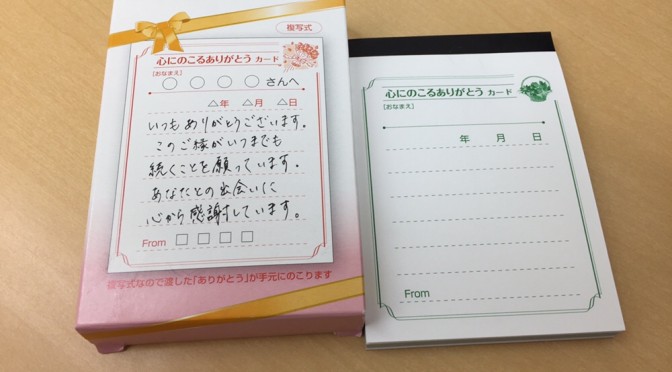 複写式
心にのこるありがとう カード
[おなまえ]
○ ○ ○ ○ さんへ
△年 △月 △日
いつもありがとうございます。
このご縁がいつまでも
続くことを願っています。
あなたとの出会いに
心から感謝しています。
From □ □ □ □
複写式なので渡した「ありがとう」が手元にのこります
心にのこるありがとう カード
[おなまえ]
年 月 日
From